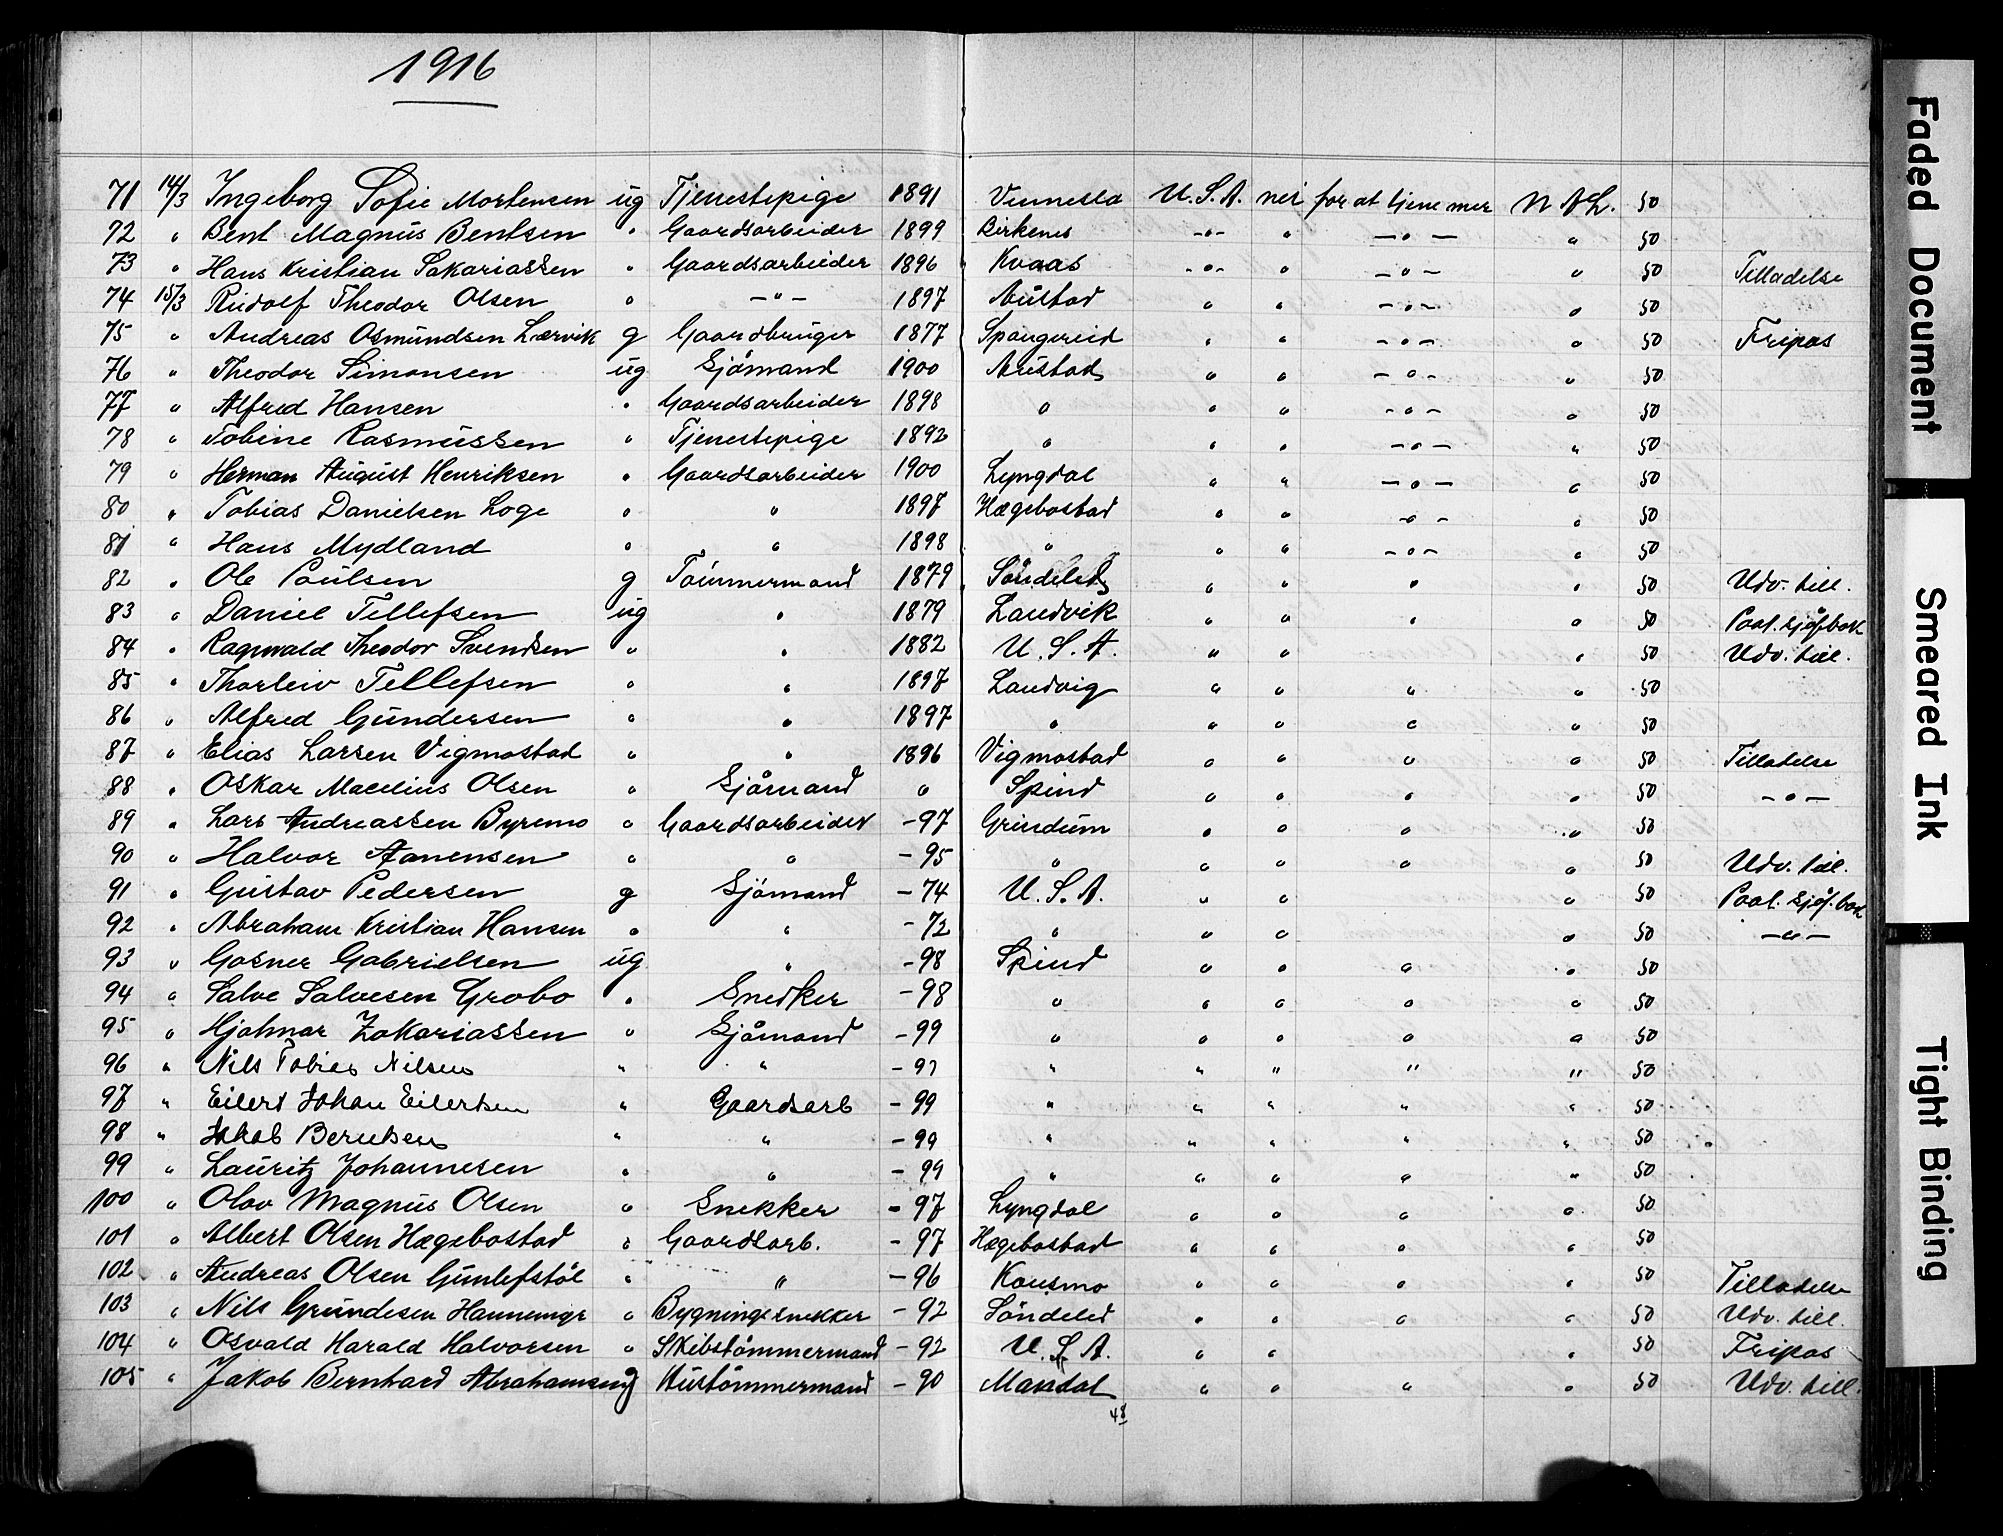 1916
71 14/3 Ingeborg Sofie Mortensen ug Tjenestepige 1891 Vennesla U.S.A. nei for at tjene mer N A L. 50
72 " Bent Magnus Bentsen " Gaardsarbeider 1899 Birkenes -"- " -"- " 50
73 " Hans Kristian Sakariassen " Gaardsarbeider 1896 Kvaas -"- " -"- " 50 Tilladelse
74 15/3 Rudolf Theodor Olsen " -"- 1897 Austad " " -"- " 50
75 " Andreas Osmundsen Lervik g Gaardbruger 1877 Spangereid " " -"- " 50 Fripas
76 " Theodor Simonsen ug Sjømand 1900 Austad " " -"- " 50
77 " Alfred Hansen " Gaardsarbeider 1898 " " " -"- " 50
78 " Tobine Rasmussen " Tjenestepige 1892 " " " -"- " 50
79 " Herman August Henriksen " Gaardsarbeider 1900 Lyngdal " " -"- " 50
80 " Tobias Danielsen Loge " " 1897 Hægebostad " " -"- " 50
81 " Hans Mydland " " 1898 " " " -"- " 50
82 " Ole Poulsen g Tømmermand 1879 Søndeled " " " " 50 Udv. till.
83 " Daniel Tellefsen ug " 1879 Landvik " " " " 50 Paat. sjøf.bok
84 " Ragnvald Theodor Svendsen " " 1882 U.S.A. " " " 50 Udv. till.
85 " Thorleiv Tellefsen " " 1897 Landvig " " " " 50
86 " Alfred Gundersen " " 1897 " " " " " 50
87 " Elias Larsen Vigmostad " " 1896 Vigmostad " " " " 50 Tilladelse
88 " Oskar Macelius Olsen " Sjømand " Spind " " " " 50 -"-
89 " Lars Andreassen Byremo " Gaardsarbeider -97 Grindum " " " " 50
90 " Halvor Aanensen " " -95 " " " " " 50 Udv. till.
91 " Gustav Pedersen g Sjømand -74 U.S.A. " " " 50 Paat. sjøf.bok
92 " Abraham Kristian Hansen " " -72 " " " " 50 -"-
93 " Gosner Gabrielsen ug " -98 Spind " " " " 50
94 " Salve Salvesen Grobo " Snedker -98 " " " " " 50
95 " Hjalmar Zakariassen " Sjømand -99 " " " " " 50
96 " Nils Tobias Nilsen " " -97 " " " " " 50
97 " Eilert Johan Eilertsen " Gaardsarb -99 " " " " " 50
98 " Jakob Berntsen " " -99 " " " " " 50
99 " Lauritz Johannesen " " -99 " " " " " 50
100 " Olav Magnus Olsen " Snekker -97 Lyngdal " " " " 50
101 " Albert Olsen Hægebostad " Gaardsarb. -97 Hægebostad " " " " 50
102 " Andreas Olsen Gunlefstøl " " -96 Konsmo " " " " 50 Tilladelse
103 " Nils Grundesen Hannemyr " Bygningssnekker -92 Søndeled " " " " 50 Udv. till.
104 " Osvald Harald Halvorsen " Skibstømmermand -92 U.S.A. " " " 50 Fripas
105 " Jakob Bernhard Abrahamsen g Hustømmermand -90 Mandal " " " " 50 Udv. till.
48
Faded Document
Smeared Ink
Tight Binding